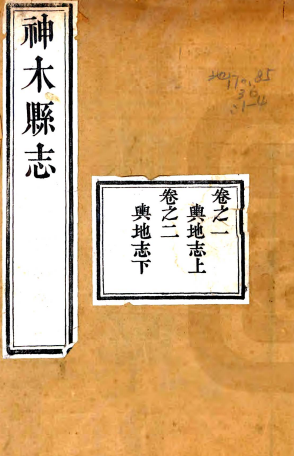 神木縣志
卷之一
輿地志上
卷之二
輿地志下